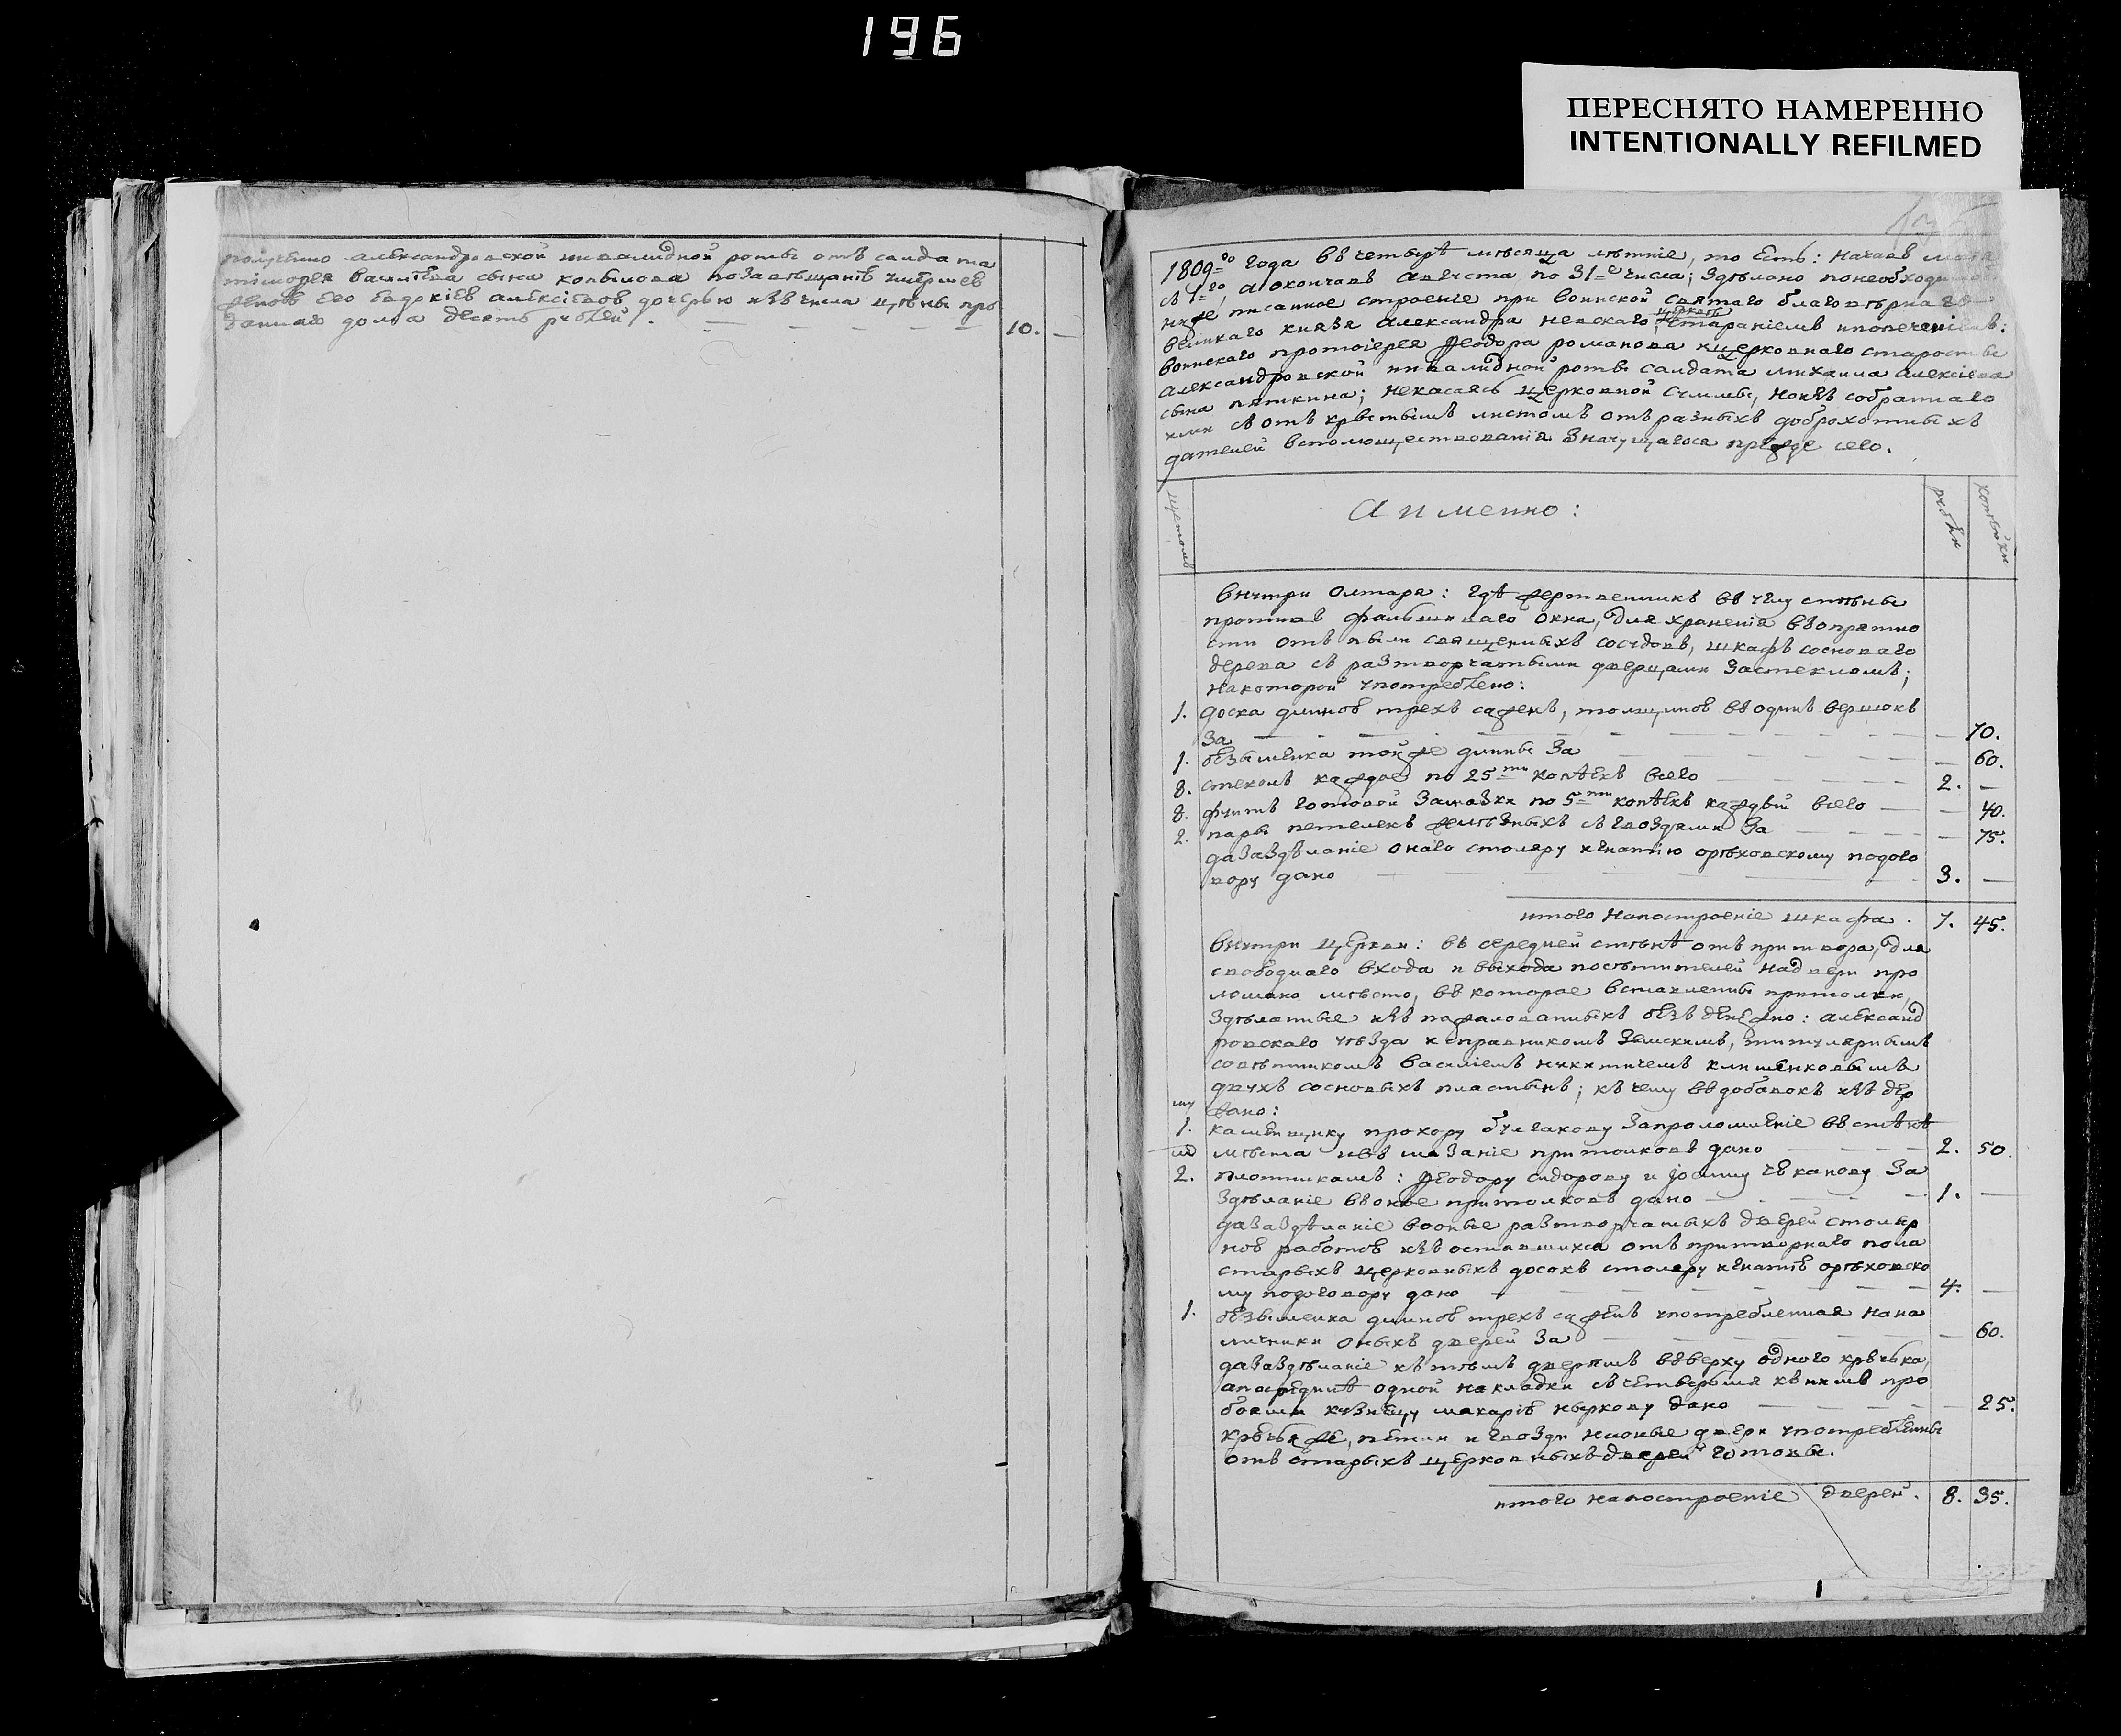 196
ПЕРЕСНЯТО НАМЕРЕННО
INTENTIONALLY REFILMED
получено александровской инвалидной роты отъ салдата
тимофея васильева сына копылова позавещанію умершей
жены его Евдокіев алексіевов дочерью изъ числа цѣны про
даннаго дома десять рублей. 10. —
1809-го года въ четырѣ мѣсяца лѣтніе, то есть: начавъ мая
съ 1-го, аокончавъ августа по 31-е число; здѣлано понеобходимо
ниже писанное строеніе при воинской святаго благовѣрнаго
церкви
великаго князя александра невскаго, стараніемъ ипопеченіемъ:
воинскаго протоіерея феодора романова ицерковнаго старосты
александровской инвалидной роты салдата михаила алексіева
сына пяткина; некасаясь церковной суммы, ноизъ собраннаго
ими съ отъ крытымъ листомъ отъ разныхъ доброхотныхъ
дателей вспомоществованія значущагося прежде сего.
щетомъ
а именно:
рубли
копѣйки
внутри олтаря: гдѣ жертвенникъ въ углу стѣны
противъ фальшиваго окна, для храненія въопрятно
сти отъ пыли священныхъ сосудовъ, шкафъ сосноваго
дерева съ разтворчатыми дверцами застекломъ;
накоторой употреблено:
1. доска длинов трехъ саженъ, толщинов въ одинъ вершокъ
за — 70.
1. безыменка тойже длины за — 60.
8. стеколъ каждое по 25-ти копѣекъ всего 2. —
8. фунтъ готовой замазки по 5-ти копѣекъ каждый всего — 40.
2. пары петелекъ желѣзныхъ съ гвоздями за — 75.
дазаздѣланіе онаго столяру игнатію орѣховскому подого
вору дано 3. —
итого напостроеніе шкафа. 7. 45.
внутри церкви: въ середней стѣнѣ отъ притвора, для
свободнаго входа и выхода посѣтителей надвери про
ломано мѣсто, въ которое вставленны притолки,
здѣланные изъ пажалованныхъ безъ денежно: александ
ровскаго уѣзда исправникомъ земскимъ, титулярнымъ
совѣтникомъ василіемъ никитичемъ клименковымъ
двухъ сосновыхъ пластинъ; къ чему въ добавокъ изъ дер
жано:
1. каменщику прохору булгакову запроломленіе въ стѣнѣ
мѣста ивъ мазаніе притолковъ дано 2. 50.
2. плотникамъ: феодору сидорову и іоанну чеканову за
здѣланіе въ оное притолковъ дано 1. —
дазаздѣланіе вооные разтворчатыхъ дверей столяр
нов работов изъ оставшихся отъ притворнаго пола
старыхъ церковныхъ досокъ столяру игнатію орѣховско
му подоговору дано 4. —
1. безыменка длинов трехъ саженъ употребленная нана
личники оныхъ дверей за — 60.
дазаздѣланіе къ тѣмъ дверямъ въверху одного крючка,
апосрединѣ одной накладки съ четверымя къ нимъ про
боями кузнецу макарію ныркову дано — 25.
крючья же, петли и гвозди наоные двери употребленны
отъ старыхъ церковныхъ дверей готовые.
итого напостроеніе дверей. 8. 35.